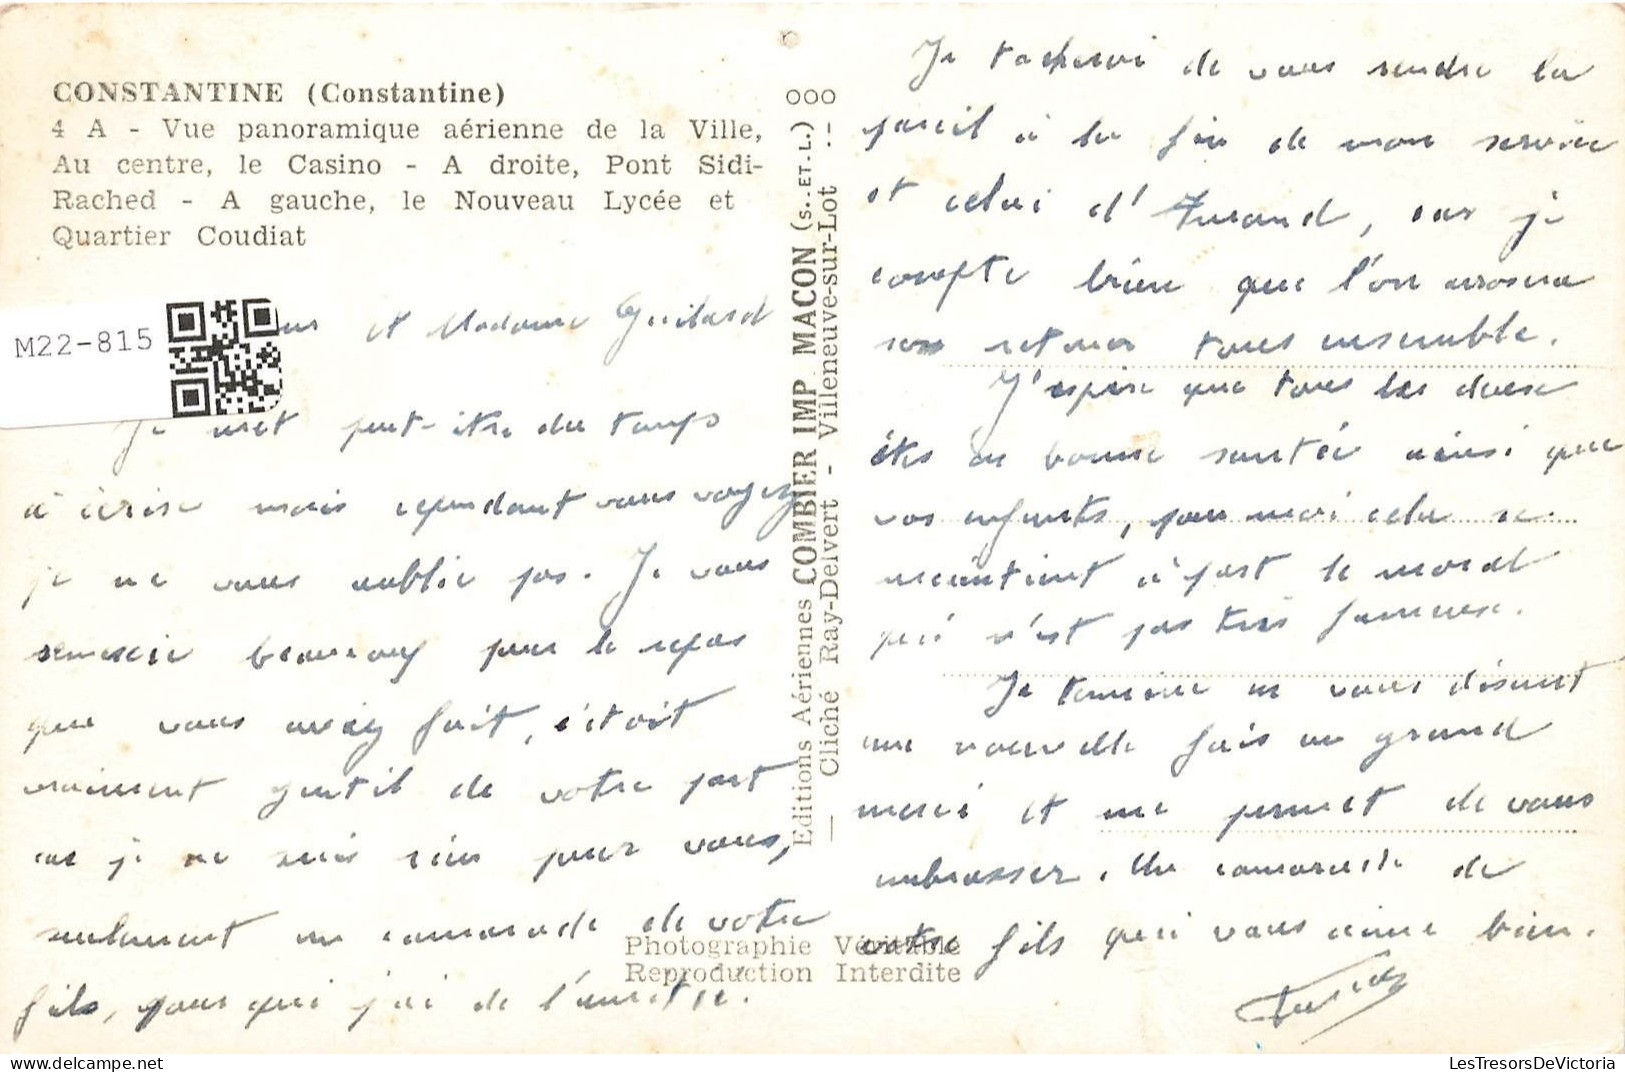 CONSTANTINE (Constantine)
4 A - Vue panoramique aérienne de la Ville,
Au centre, le Casino - A droite, Pont Sidi-
Rached - A gauche, le Nouveau Lycée et
Quartier Coudiat
M22-815
et Madame Guilard
Je met peut-être du temps
à écrire mais cependant vous voyez
je ne vous oublie pas. Je vous
remercie beaucoup pour le repas
que vous avez fait, c'était
vraiment gentil de votre part
car je ne suis rien pour vous,
seulement un camarade de votre
fils, pour qui j'ai de l'amitié.
OOO
Editions Aériennes COMBIER IMP MACON (S.-ET-L.)
— Cliché Ray-Delvert - Villeneuve-sur-Lot --
Photographie Véritable
Reproduction Interdite
Je tacherai de vous rendre la
pareil à la fin de mon service
et celui d', car je
compte bien que l'on arrosera
son retour tous ensemble.
J'espère que tous les deux
êtes en bonne santée ainsi que
vos enfants, pour moi cela se
maintient à part le moral
qui n'est pas très fameux.
Je termine en vous disant
une nouvelle fois un grand
merci et me permet de vous
embrasser. Un camarade de
votre fils qui vous aime bien.
LesTresorsDeVictoria